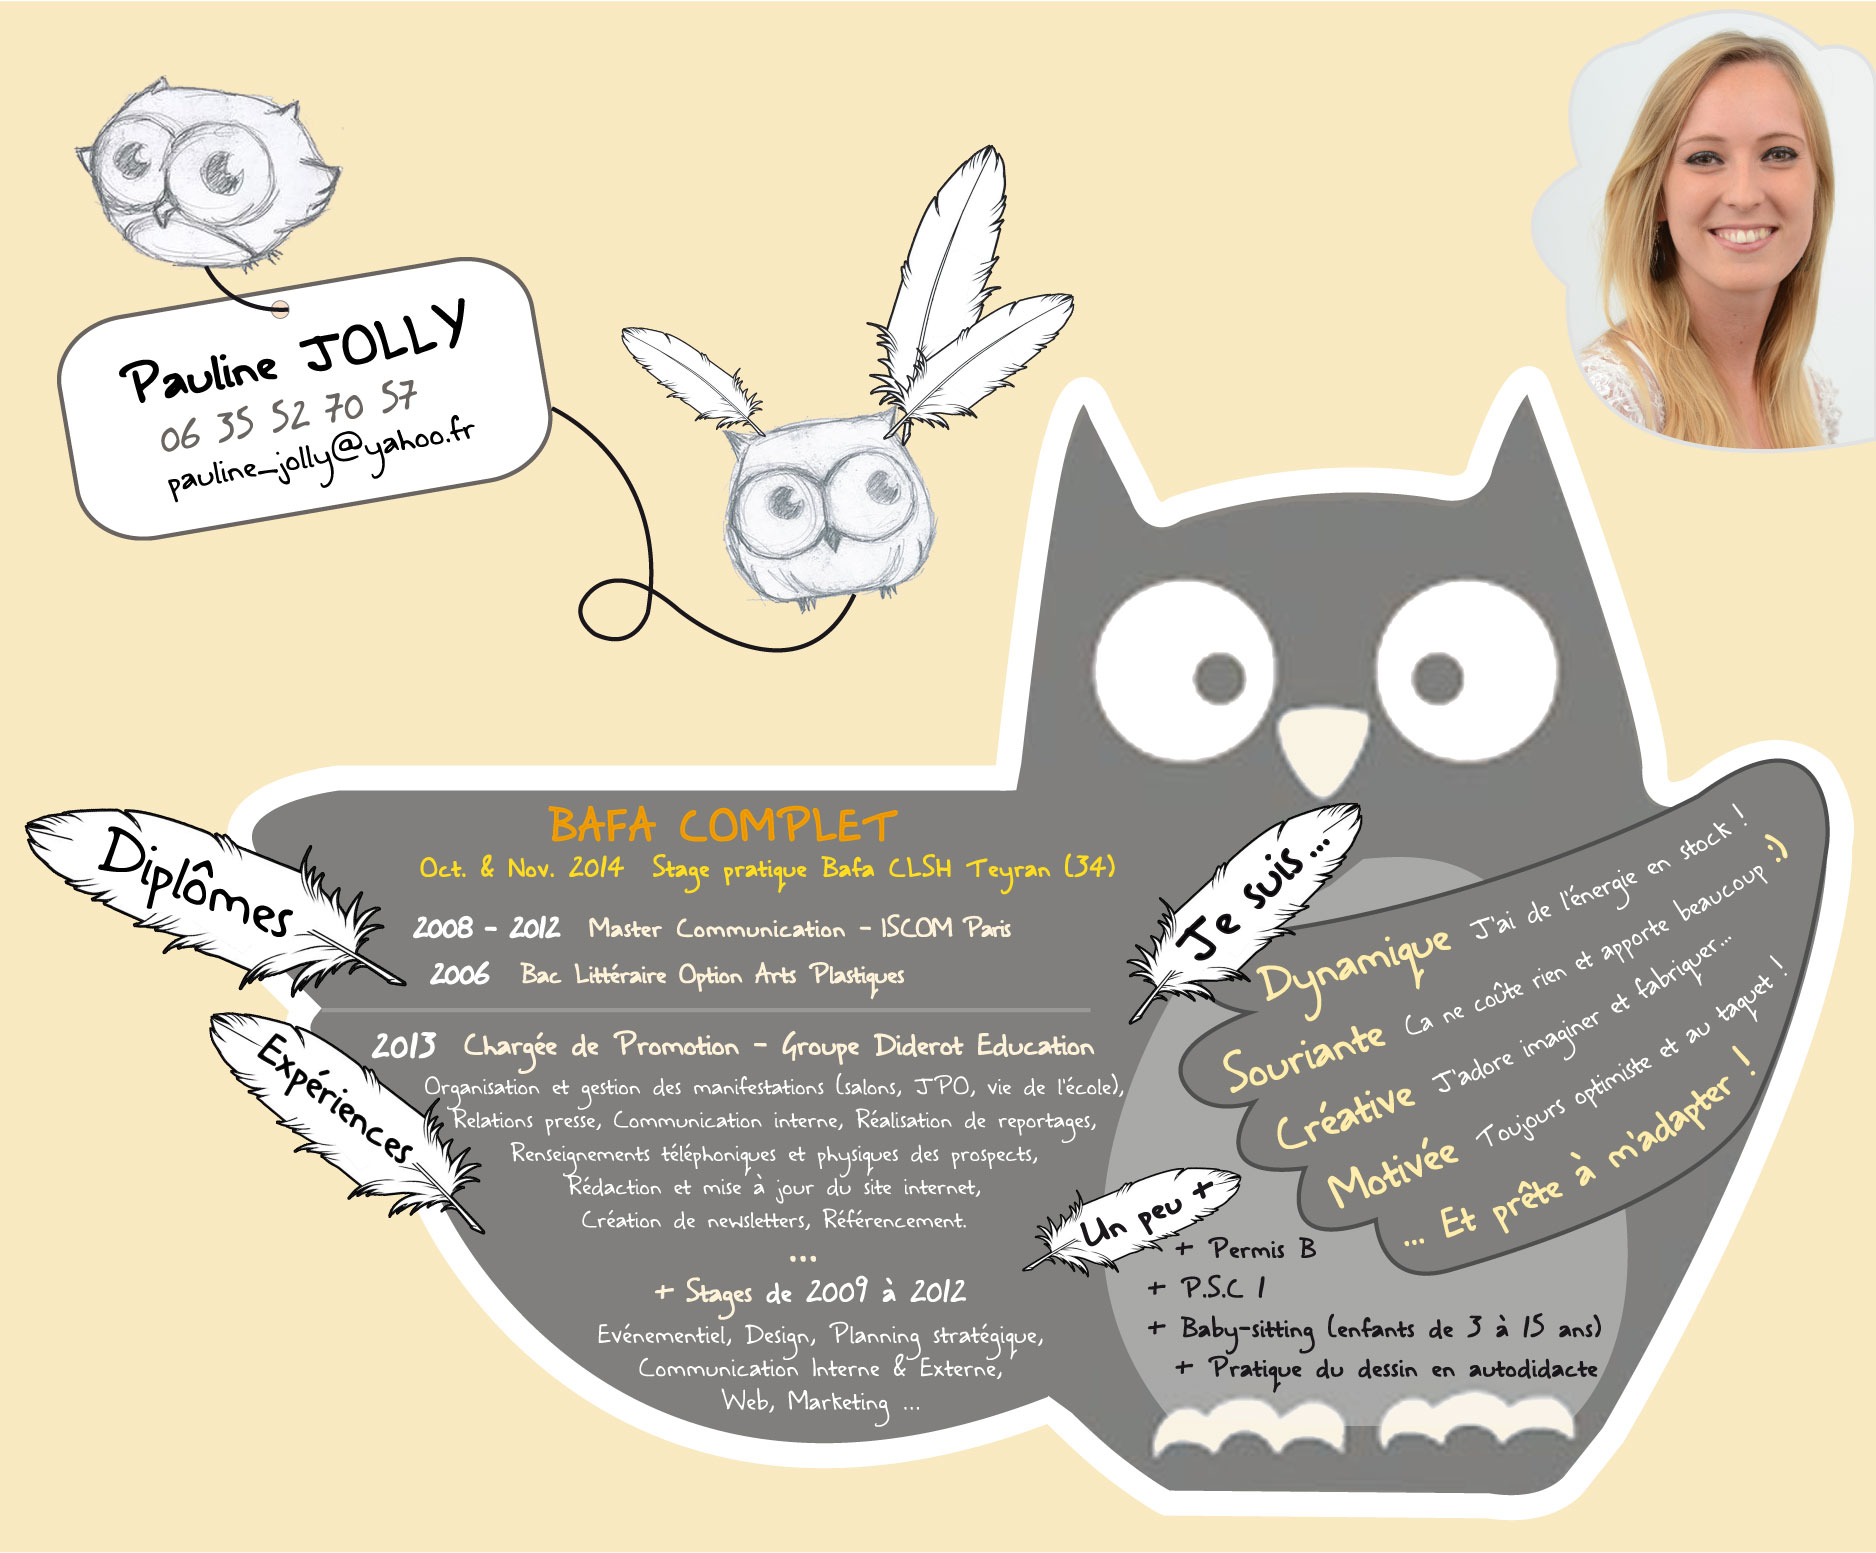 Pauline JOLLY
06 35 52 70 57
pauline_jolly@yahoo.fr
Diplômes
BAFA COMPLET
Oct. & Nov. 2014 Stage pratique Bafa CLSH Teyran (34)
2008 - 2012 Master Communication - ISCOM Paris
2006 Bac Littéraire Option Arts Plastiques
Expériences
2013 Chargée de Promotion - Groupe Diderot Education
Organisation et gestion des manifestations (salons, JPO, vie de l'école),
Relations presse, Communication interne, Réalisation de reportages,
Renseignements téléphoniques et physiques des prospects,
Rédaction et mise à jour du site internet,
Création de newsletters, Référencement.
...
+ Stages de 2009 à 2012
Evénementiel, Design, Planning stratégique,
Communication Interne & Externe,
Web, Marketing ...
Je suis...
Dynamique J'ai de l'énergie en stock !
Souriante Ca ne coûte rien et apporte beaucoup :)
Créative J'adore imaginer et fabriquer...
Motivée Toujours optimiste et au taquet !
... Et prête à m'adapter !
Un peu +
+ Permis B
+ P.S.C 1
+ Baby-sitting (enfants de 3 à 15 ans)
+ Pratique du dessin en autodidacte